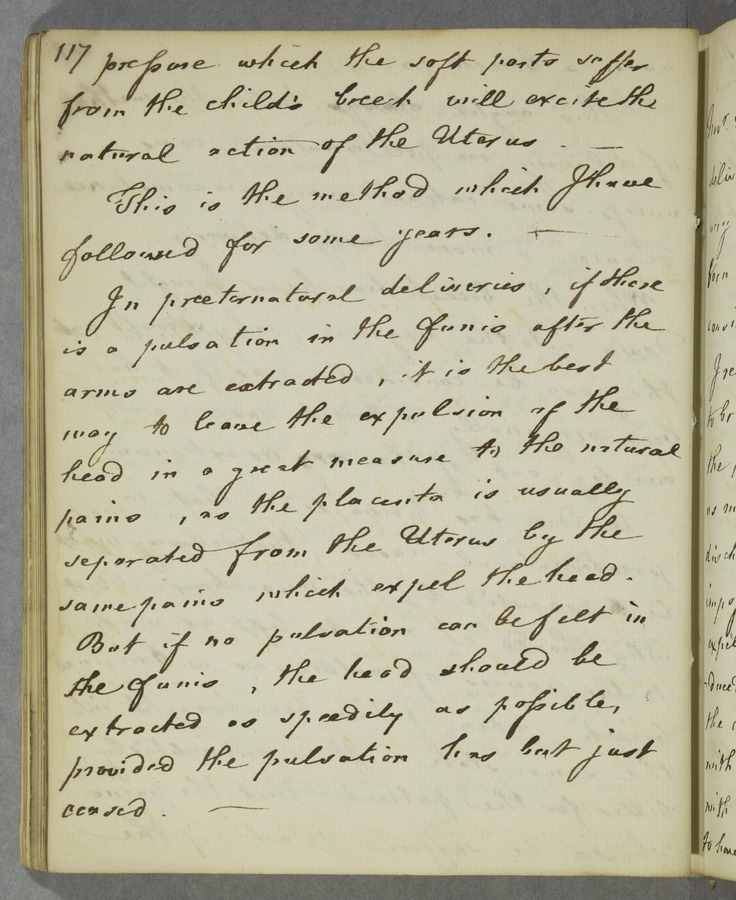 117 pressure which the soft parts suffer
from the child's breech will excite the
natural action of the Uterus. —
This is the method which I have
followed for some years. —
In preeternatural deliveries, if there
is a pulsation in the funis after the
arms are extracted, it is the best
way to leave the expulsion of the
head in a great measure to the natural
pains, as the placenta is usually
seperated from the Uterus by the
same pains which expel the head.
But if no pulsation can be felt in
the funis, the head should be
extracted as speedily as possible,
provided the pulsation has but just
ceased. —